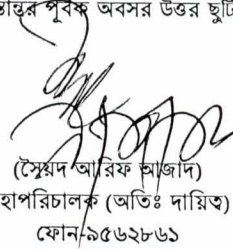 পূর্বক অবসর উত্তর ছুটি
(সৈয়দ আরিফ আজাদ)
হাপরিচালক (অতিঃ দায়িত্ব)
ফোন-৯৫৬২৮৬১